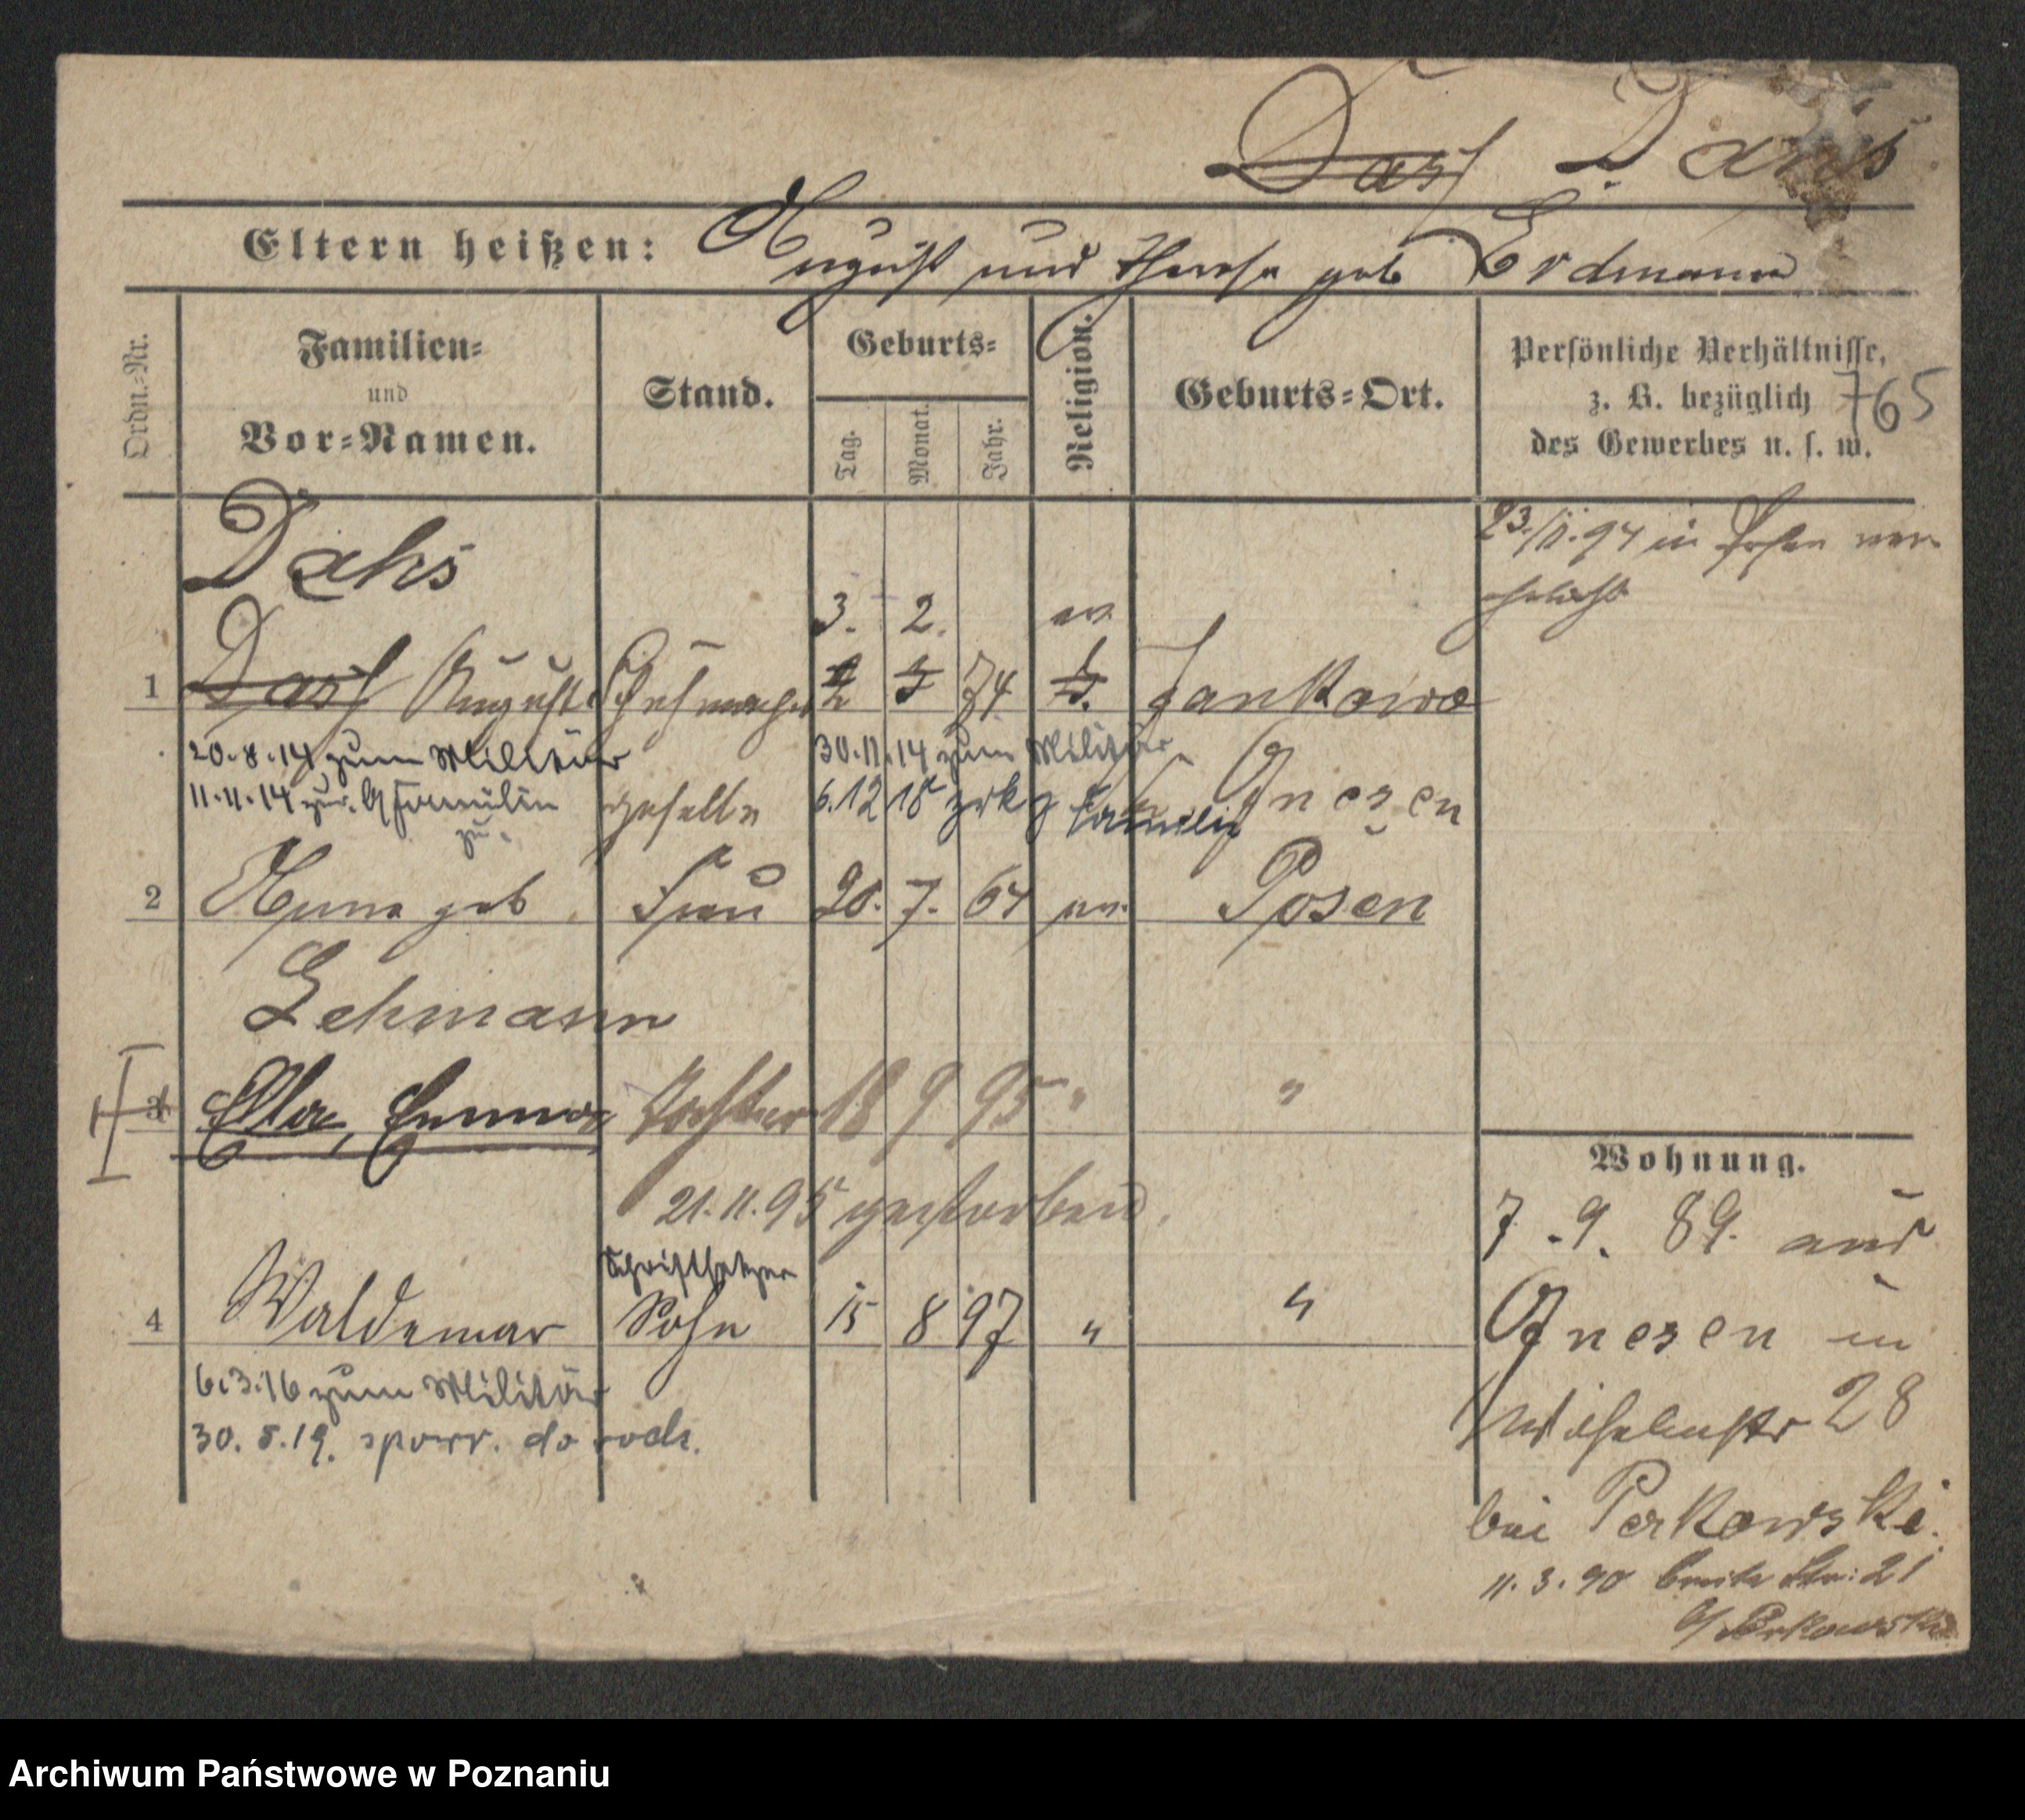 Dahs
Eltern heißen: August und Therese geb Erdmann
Ordn.-Nr.
Familien-
und
Vor-Namen.
Stand.
Geburts-
Tag.
Monat.
Jahr.
Religion.
Geburts-Ort.
Persönliche Verhältnisse,
z. B. bezüglich
des Gewerbes u. s. w.
765
23/11.94 in Posen ver
ehelicht
Dahs
3. 2. ev.
1 August Schuhmacher 74 Jankowo
20.8.14 zum Militär 30.11.14 zum Militär
11.11.14 zur Familie zu. geselle 6.12 18 zrk z Familie Gnesen
2 Anna geb Frau 20. 7. 64 ev. Posen
Lehmann
3 Ella, Emma Tochter 18 9 95 " "
21.11.95 gestorben.
Schriftsetzer
4 Waldemar Sohn 15 8 97 " "
6.3.16 zum Militär
30.5.19. powr. do rodz.
Wohnung.
7.9.89. aus
Gnesen in
Wilhelmstr 28
bei Perkowski.
11.3.90 breite Str: 21
b/ Perkowski
Archiwum Państwowe w Poznaniu